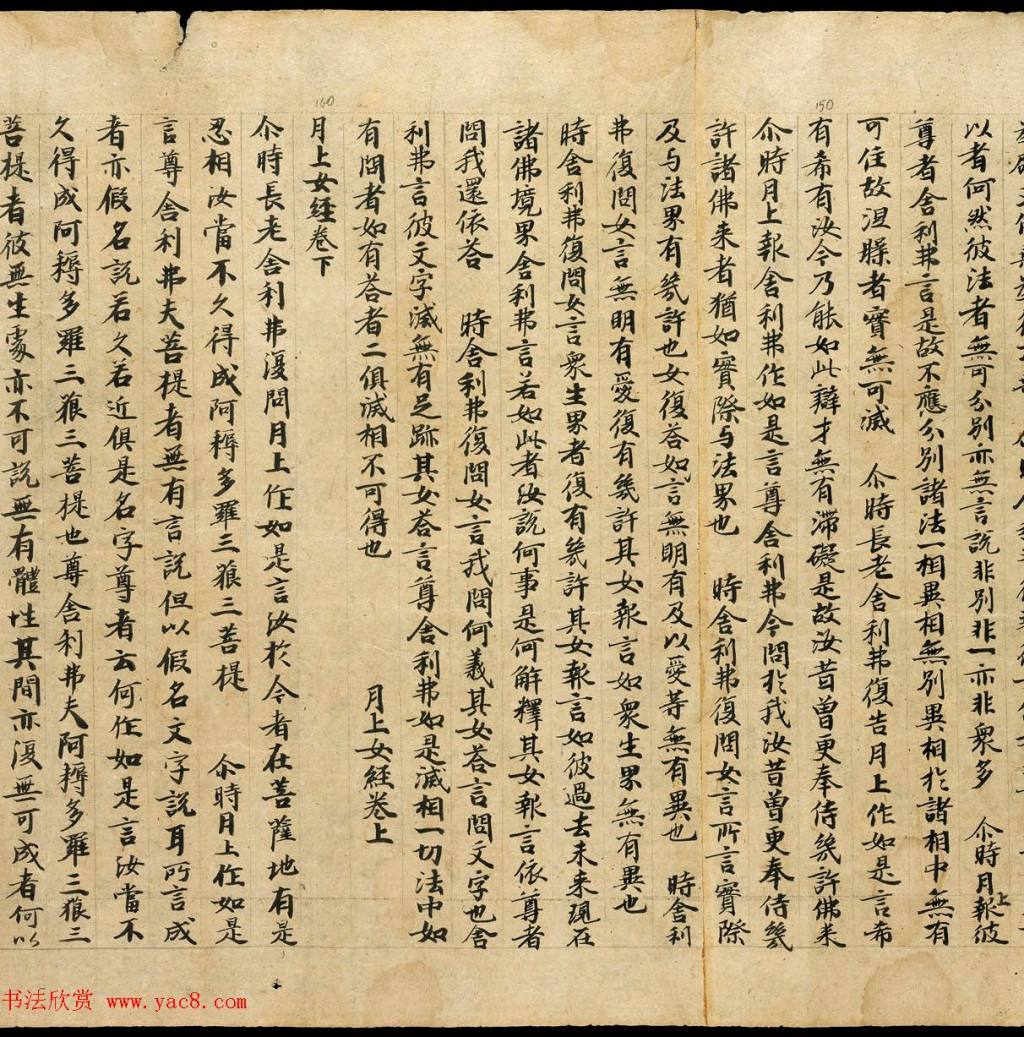 以者何然彼法者無可分別亦無言說非別非一亦非衆多　尒時月上報彼
尊者舍利弗言是故不應分別諸法一相異相無別異相於諸相中無有
可住故涅槃者實無可滅　尒時長老舍利弗復告月上作如是言希
有希有汝今乃能如此辯才無有滯礙是故汝昔曾更奉侍幾許佛来
尒時月上報舍利弗作如是言尊舍利弗今問於我汝昔曾更奉侍幾
許諸佛来者猶如實際与法界也　時舍利弗復問女言所言實際
及与法界有幾許也女復荅如言無明有及以愛等無有異也　時舍利
弗復問女言無明有愛復有幾許其女報言如衆生界無有異也
時舍利弗復問女言衆生界者復有幾許其女報言如彼過去未来現在
諸佛境界舍利弗言若如此者汝說何事是何解釋其女報言依尊者
問我還依荅　時舍利弗復問女言我問何義其女荅言問文字也舍
利弗言彼文字滅無有足跡其女荅言尊舍利弗如是滅相一切法中如
有問者如有荅者二俱滅相不可得也　月上女經卷上
月上女經卷下
尒時長老舍利弗復問月上作如是言汝於今者在菩薩地有是
忍相汝當不久得成阿耨多羅三狼三菩提　尒時月上作如是
言尊舍利弗夫菩提者無有言說但以假名文字說耳所言成
者亦假名說若久若近俱是名字尊者云何作如是言汝當不
久得成阿耨多羅三狼三菩提也尊舍利弗夫阿耨多羅三狼三
菩提者彼無生處亦不可說無有體性其間亦復無可成者何以
150
160
书法欣赏 www.yac8.com